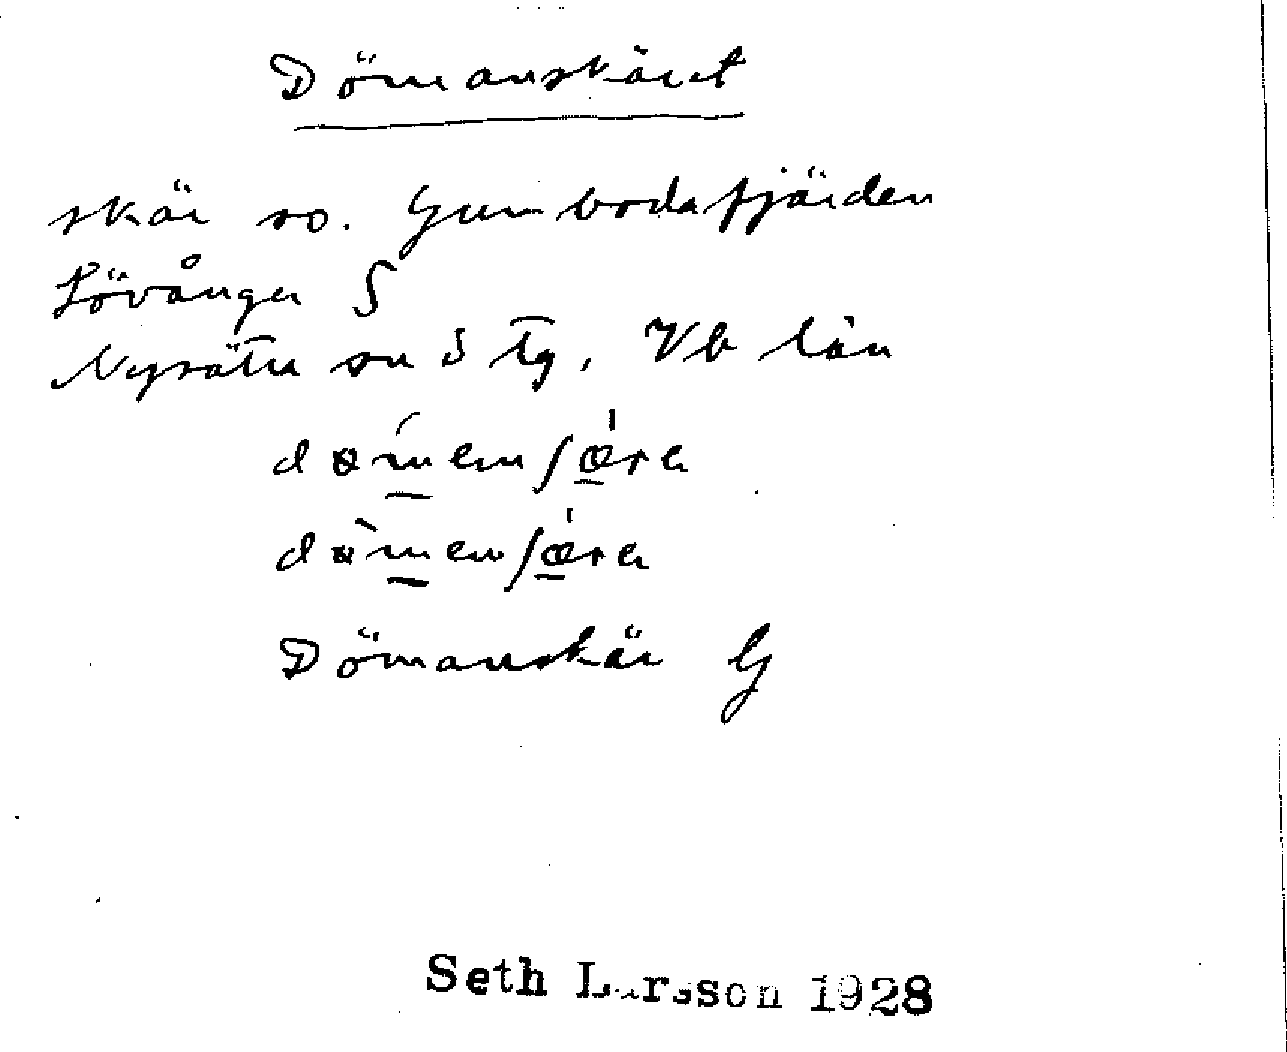 Dömanskäret
skär so. Gumbodafjärden
Lövånger S
Nysätra sn o tg, Vb län
Dömanskär G
Seth Larsson 1928